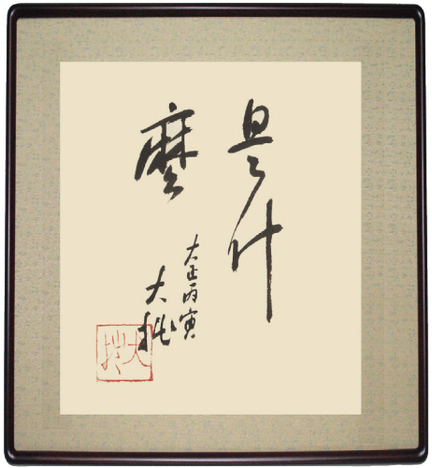 是什
麼
大正丙寅
大拙
大拙